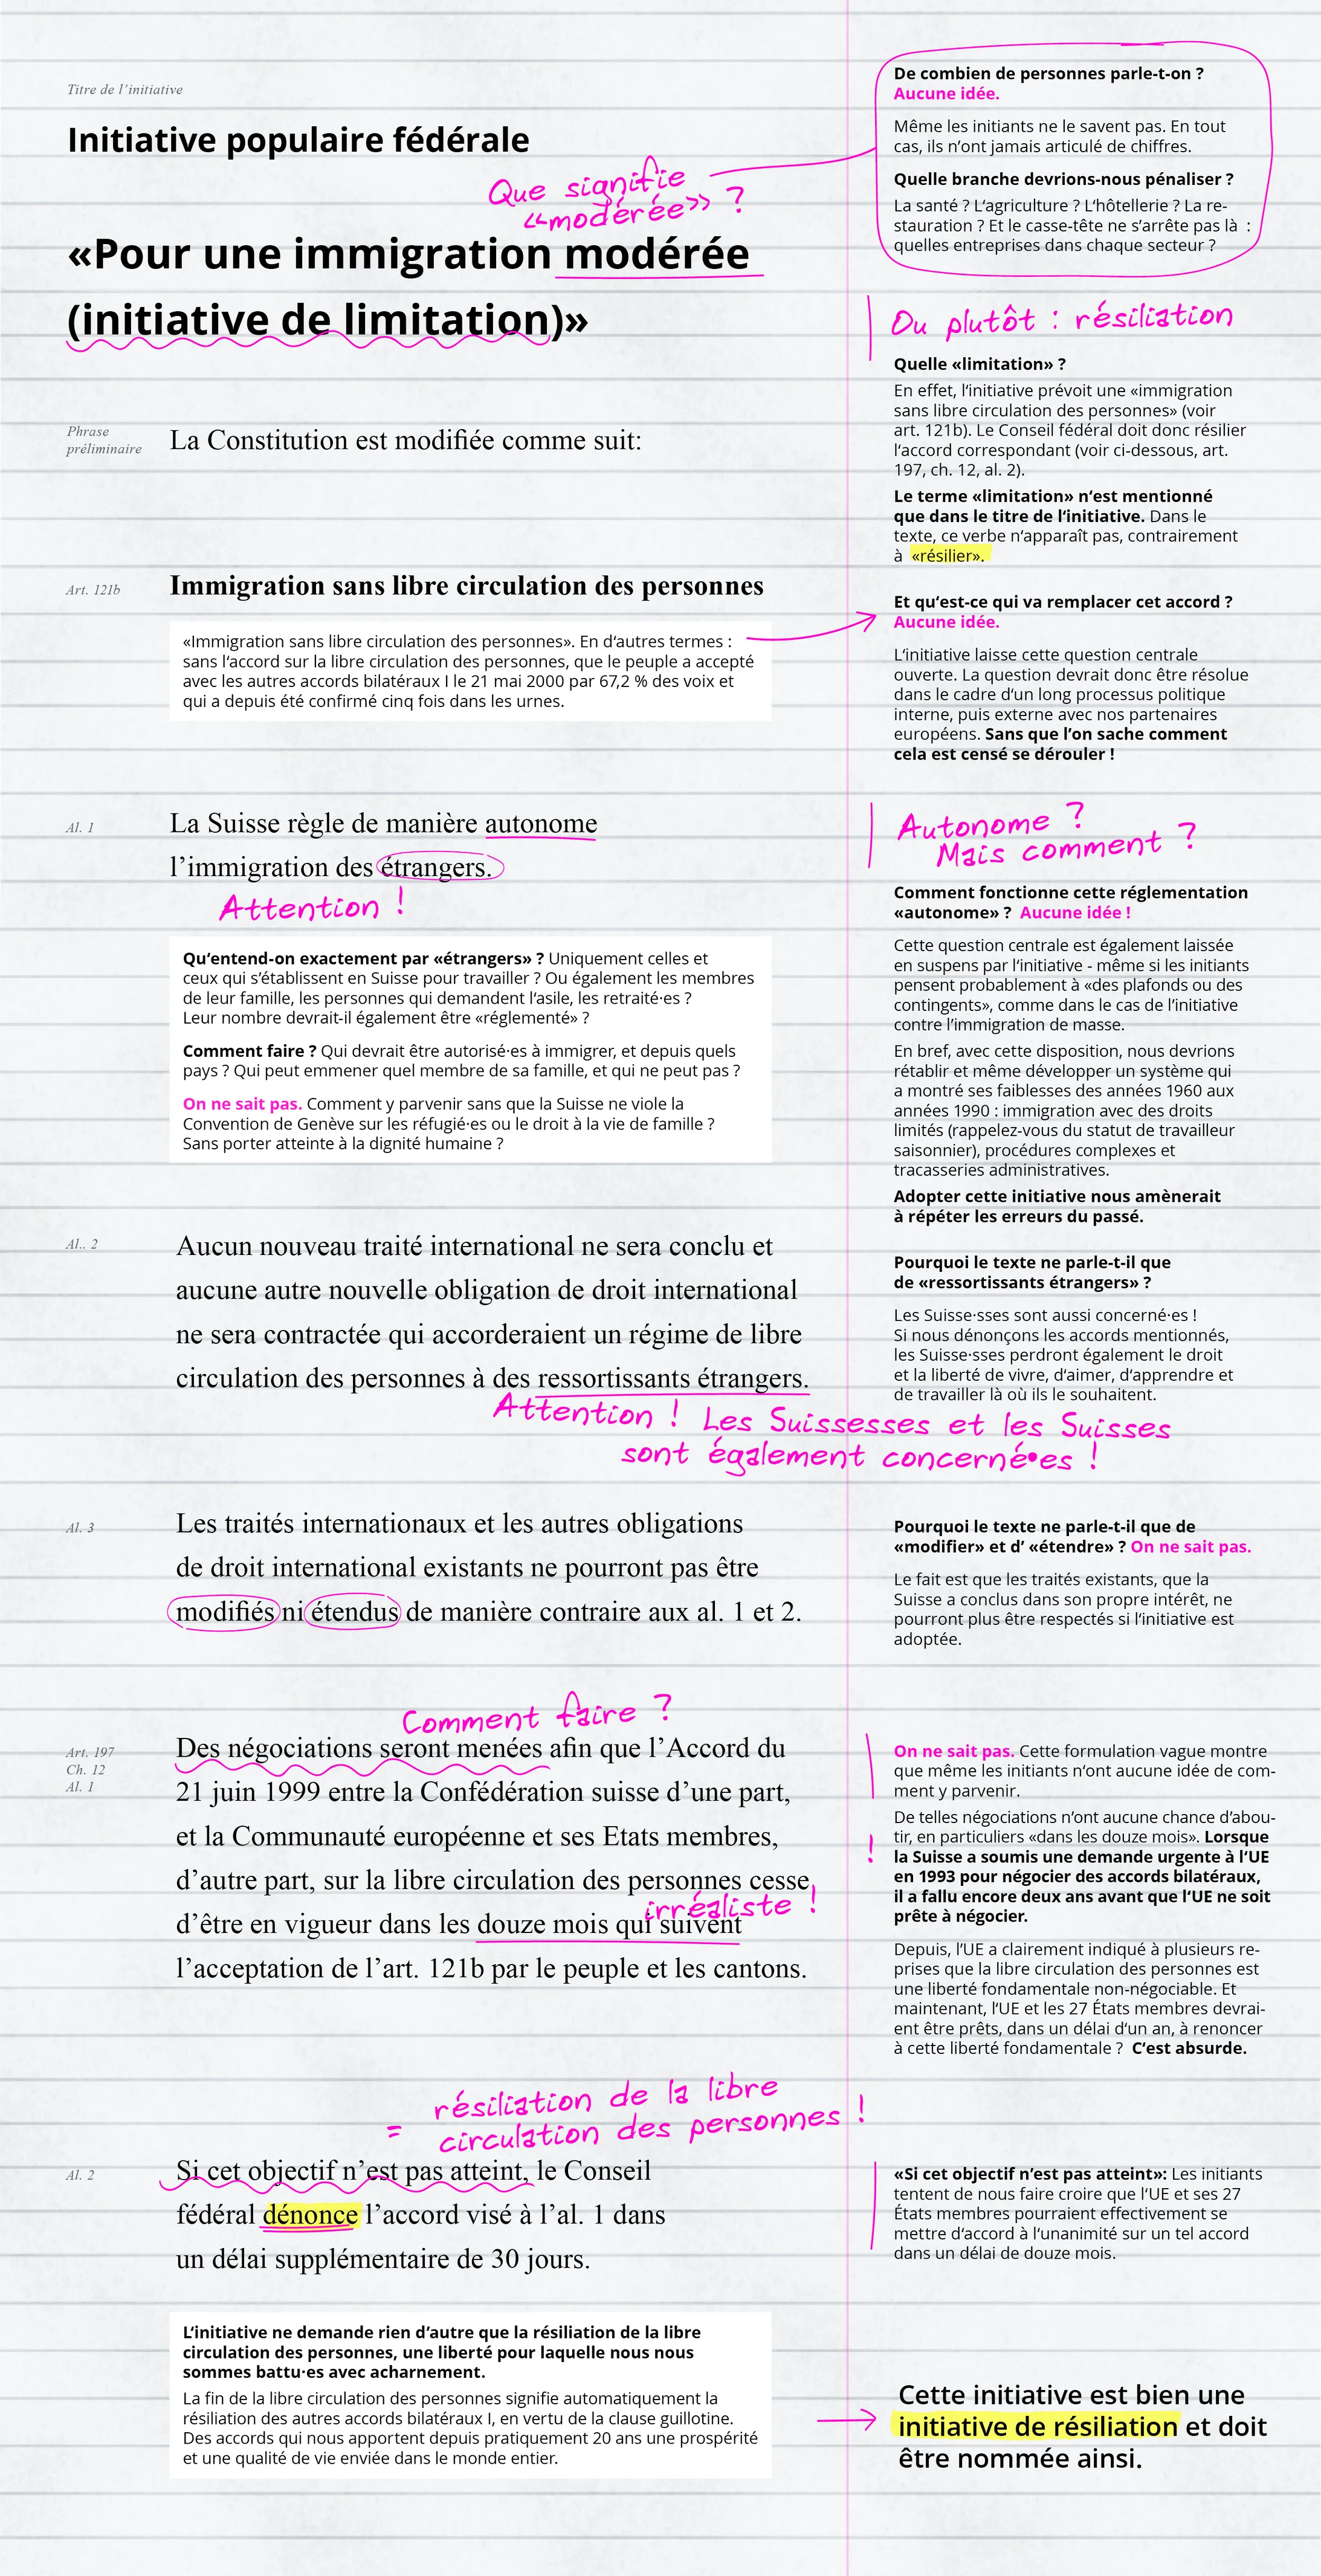 Titre de l’initiative
Initiative populaire fédérale
Que signifie
«modérée» ?
«Pour une immigration modérée
(initiative de limitation)»
De combien de personnes parle-t-on ?
Aucune idée.
Même les initiants ne le savent pas. En tout
cas, ils n’ont jamais articulé de chiffres.
Quelle branche devrions-nous pénaliser ?
La santé ? L‘agriculture ? L‘hôtellerie ? La re-
stauration ? Et le casse-tête ne s’arrête pas là :
quelles entreprises dans chaque secteur ?
Ou plutôt : résiliation
Quelle «limitation» ?
En effet, l‘initiative prévoit une «immigration
sans libre circulation des personnes» (voir
art. 121b). Le Conseil fédéral doit donc résilier
l‘accord correspondant (voir ci-dessous, art.
197, ch. 12, al. 2).
Le terme «limitation» n‘est mentionné
que dans le titre de l‘initiative. Dans le
texte, ce verbe n‘apparaît pas, contrairement
à «résilier».
Phrase
préliminaire
La Constitution est modifiée comme suit:
Art. 121b
Immigration sans libre circulation des personnes
«Immigration sans libre circulation des personnes». En d‘autres termes :
sans l‘accord sur la libre circulation des personnes, que le peuple a accepté
avec les autres accords bilatéraux I le 21 mai 2000 par 67,2 % des voix et
qui a depuis été confirmé cinq fois dans les urnes.
Et qu‘est-ce qui va remplacer cet accord ?
Aucune idée.
L‘initiative laisse cette question centrale
ouverte. La question devrait donc être résolue
dans le cadre d‘un long processus politique
interne, puis externe avec nos partenaires
européens. Sans que l’on sache comment
cela est censé se dérouler !
Al. 1
La Suisse règle de manière autonome
l’immigration des étrangers.
Attention !
Qu‘entend-on exactement par «étrangers» ? Uniquement celles et
ceux qui s’établissent en Suisse pour travailler ? Ou également les membres
de leur famille, les personnes qui demandent l‘asile, les retraité·es ?
Leur nombre devrait-il également être «réglementé» ?
Comment faire ? Qui devrait être autorisé·es à immigrer, et depuis quels
pays ? Qui peut emmener quel membre de sa famille, et qui ne peut pas ?
On ne sait pas. Comment y parvenir sans que la Suisse ne viole la
Convention de Genève sur les réfugié·es ou le droit à la vie de famille ?
Sans porter atteinte à la dignité humaine ?
Autonome ?
Mais comment ?
Comment fonctionne cette réglementation
«autonome» ? Aucune idée !
Cette question centrale est également laissée
en suspens par l‘initiative - même si les initiants
pensent probablement à «des plafonds ou des
contingents», comme dans le cas de l’initiative
contre l’immigration de masse.
En bref, avec cette disposition, nous devrions
rétablir et même développer un système qui
a montré ses faiblesses des années 1960 aux
années 1990 : immigration avec des droits
limités (rappelez-vous du statut de travailleur
saisonnier), procédures complexes et
tracasseries administratives.
Adopter cette initiative nous amènerait
à répéter les erreurs du passé.
Al.. 2
Aucun nouveau traité international ne sera conclu et
aucune autre nouvelle obligation de droit international
ne sera contractée qui accorderaient un régime de libre
circulation des personnes à des ressortissants étrangers.
Pourquoi le texte ne parle-t-il que
de «ressortissants étrangers» ?
Les Suisse·sses sont aussi concerné·es !
Si nous dénonçons les accords mentionnés,
les Suisse·sses perdront également le droit
et la liberté de vivre, d‘aimer, d‘apprendre et
de travailler là où ils le souhaitent.
Attention ! Les Suissesses et les Suisses
sont également concerné•es !
Al. 3
Les traités internationaux et les autres obligations
de droit international existants ne pourront pas être
modifiés ni étendus de manière contraire aux al. 1 et 2.
Pourquoi le texte ne parle-t-il que de
«modifier» et d’ «étendre» ? On ne sait pas.
Le fait est que les traités existants, que la
Suisse a conclus dans son propre intérêt, ne
pourront plus être respectés si l‘initiative est
adoptée.
Comment faire ?
Art. 197
Ch. 12
Al. 1
Des négociations seront menées afin que l’Accord du
21 juin 1999 entre la Confédération suisse d’une part,
et la Communauté européenne et ses Etats membres,
d’autre part, sur la libre circulation des personnes cesse
irréaliste !
d’être en vigueur dans les douze mois qui suivent
l’acceptation de l’art. 121b par le peuple et les cantons.
On ne sait pas. Cette formulation vague montre
que même les initiants n‘ont aucune idée de com-
ment y parvenir.
!
De telles négociations n’ont aucune chance d’abou-
tir, en particuliers «dans les douze mois». Lorsque
la Suisse a soumis une demande urgente à l‘UE
en 1993 pour négocier des accords bilatéraux,
il a fallu encore deux ans avant que l‘UE ne soit
prête à négocier.
Depuis, l’UE a clairement indiqué à plusieurs re-
prises que la libre circulation des personnes est
une liberté fondamentale non-négociable. Et
maintenant, l‘UE et les 27 États membres devrai-
ent être prêts, dans un délai d‘un an, à renoncer
à cette liberté fondamentale ? C‘est absurde.
= résiliation de la libre
circulation des personnes !
Al. 2
Si cet objectif n’est pas atteint, le Conseil
fédéral dénonce l’accord visé à l’al. 1 dans
un délai supplémentaire de 30 jours.
«Si cet objectif n’est pas atteint»: Les initiants
tentent de nous faire croire que l‘UE et ses 27
États membres pourraient effectivement se
mettre d‘accord à l‘unanimité sur un tel accord
dans un délai de douze mois.
L‘initiative ne demande rien d‘autre que la résiliation de la libre
circulation des personnes, une liberté pour laquelle nous nous
sommes battu·es avec acharnement.
La fin de la libre circulation des personnes signifie automatiquement la
résiliation des autres accords bilatéraux I, en vertu de la clause guillotine.
Des accords qui nous apportent depuis pratiquement 20 ans une prospérité
et une qualité de vie enviée dans le monde entier.
Cette initiative est bien une
initiative de résiliation et doit
être nommée ainsi.